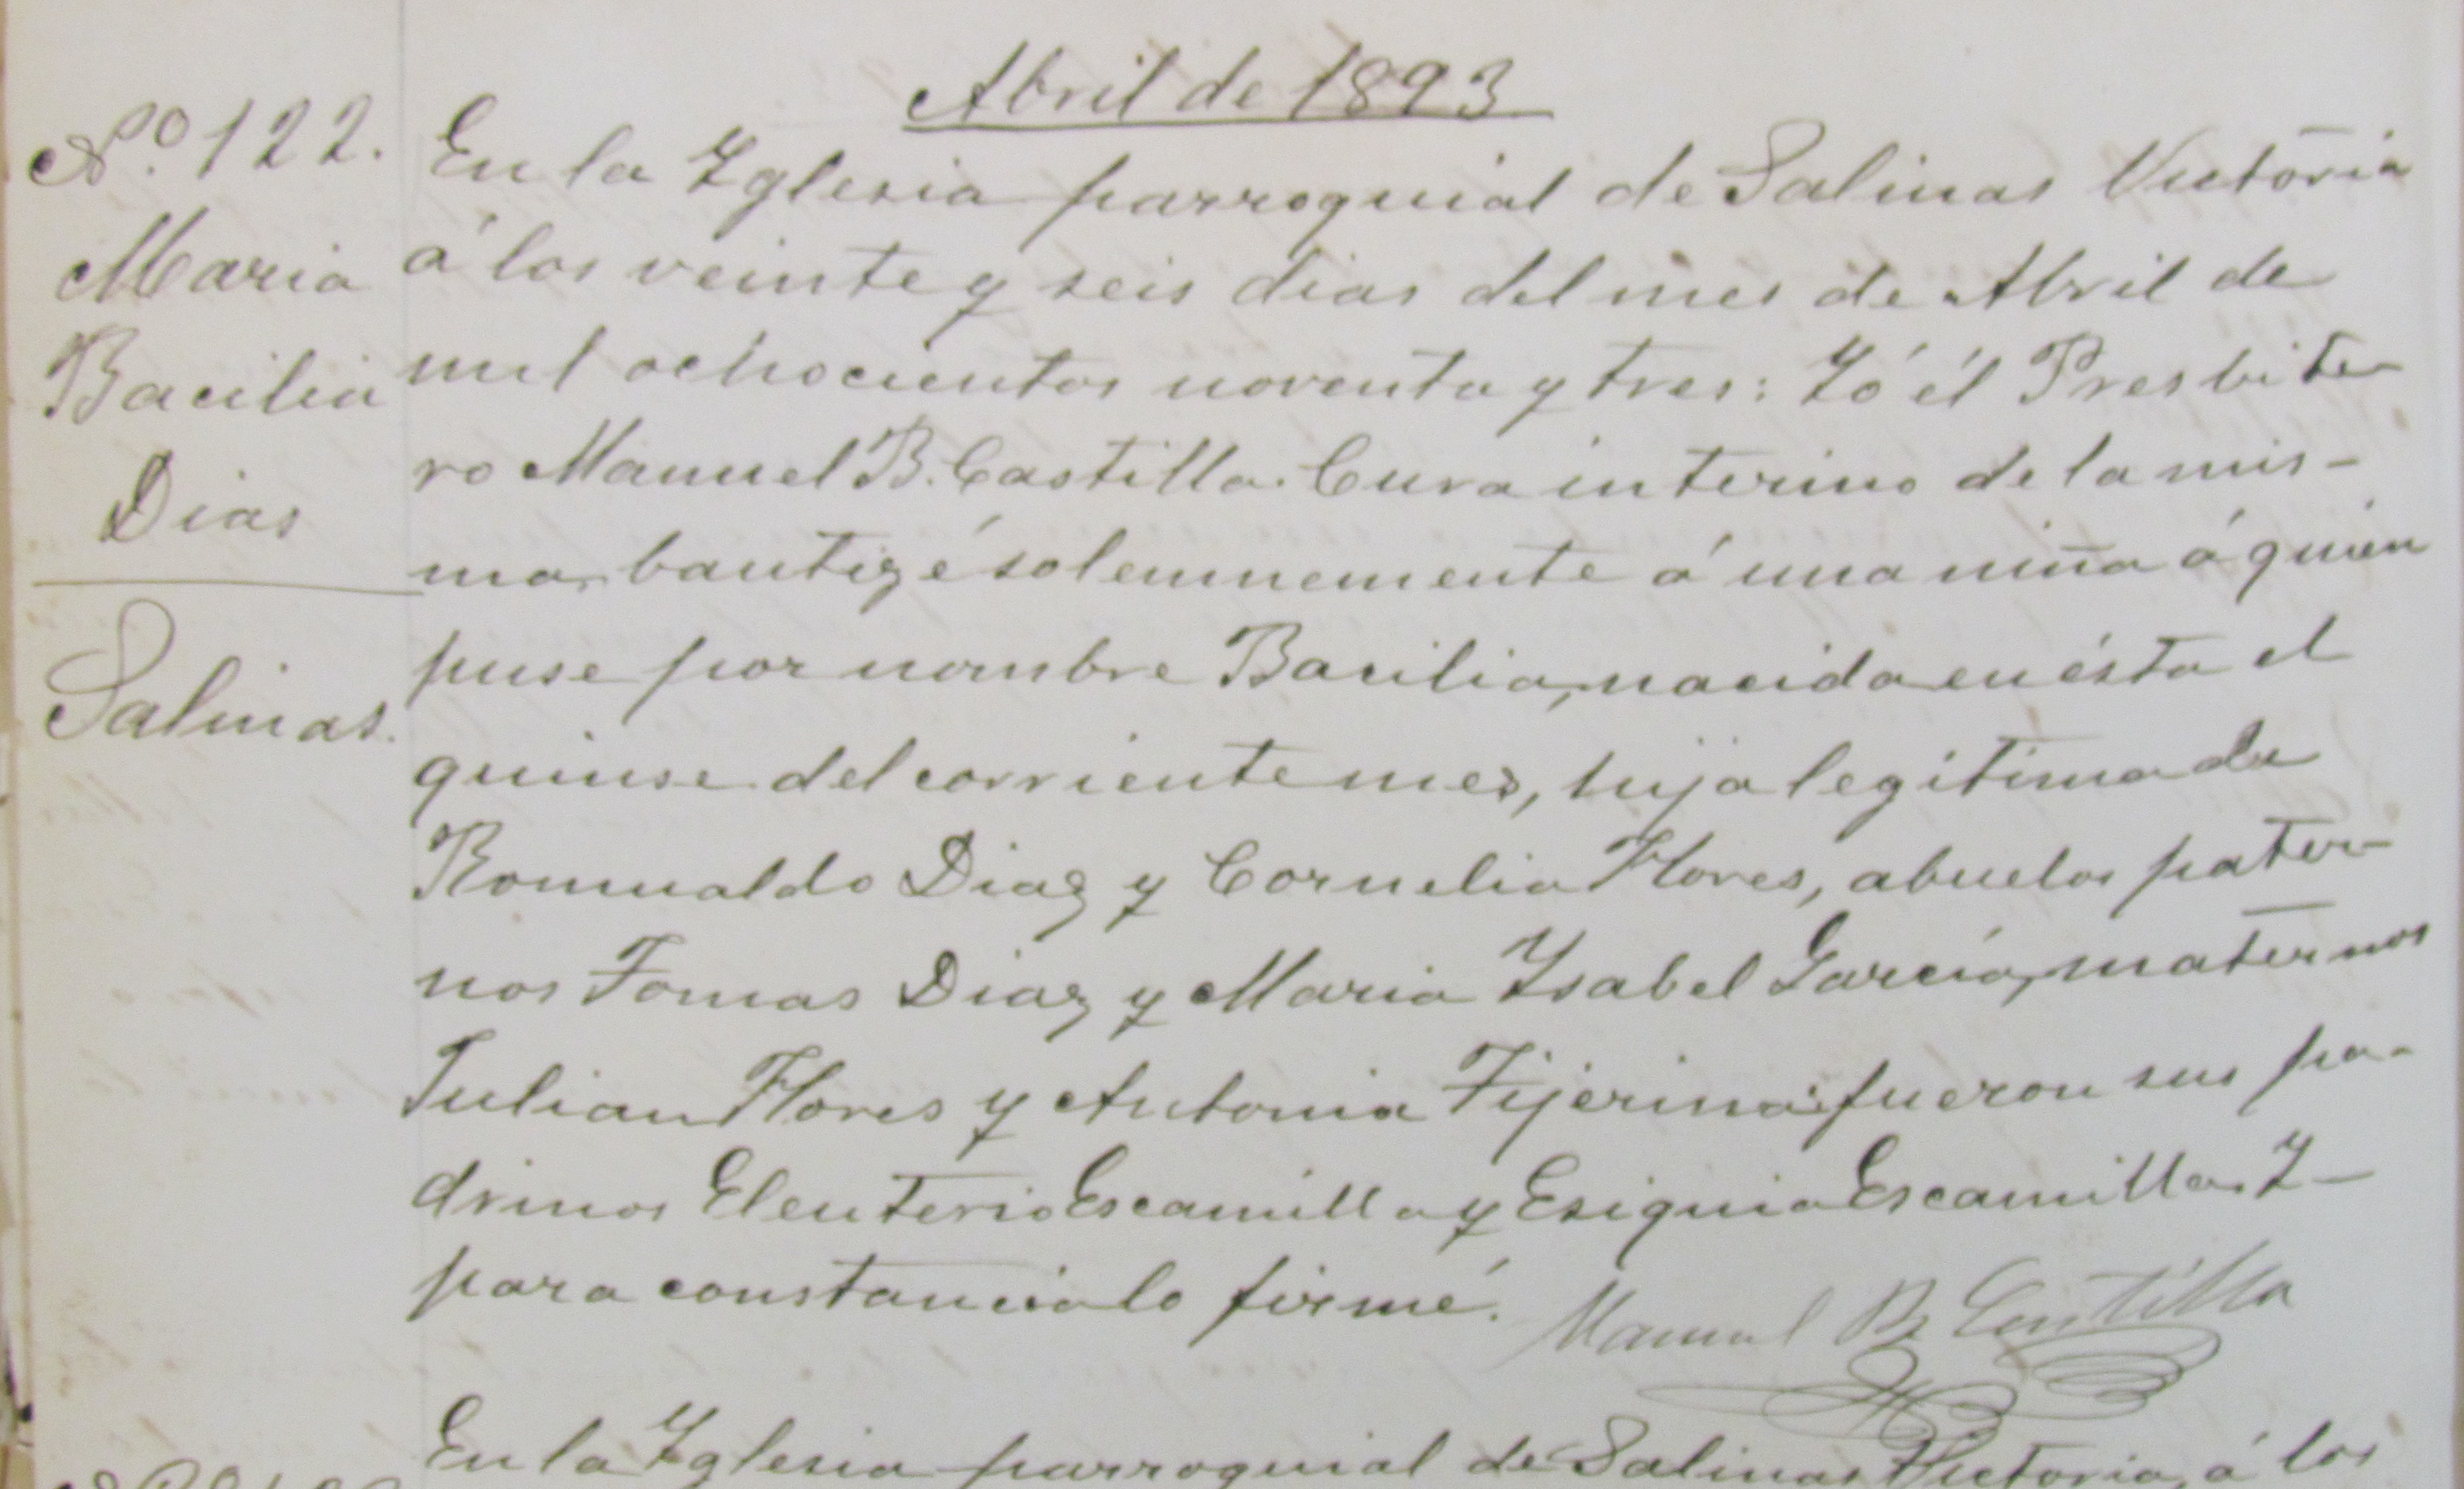 Abril de 1893
N.º 122.
Maria
Bacilia
Dias
Salinas.
En la Yglesia parroquial de Salinas Victoria
á los veinte y seis dias del mes de Abril de
mil ochocientos noventa y tres: Yó él Presbite
ro Manuel B. Castilla. Cura interino de la mis-
ma, bautizé solemnemente á una niña á quien
puse por nombre Bacilia, nacida en ésta el
quinse del corriente mes, hija legitima de
Romualdo Diaz y Cornelia Flores, abuelos pater-
nos Tomas Diaz y Maria Ysabel Garcia, maternos
Julian Flores y Antonia Tijerina: fueron sus pa-
drinos Eleuterio Escamilla y Esiquia Escamilla. Y-
para constancia lo firmé.
Manuel B. Castilla
En la Yglesia parroquial de Salinas Victoria, á los